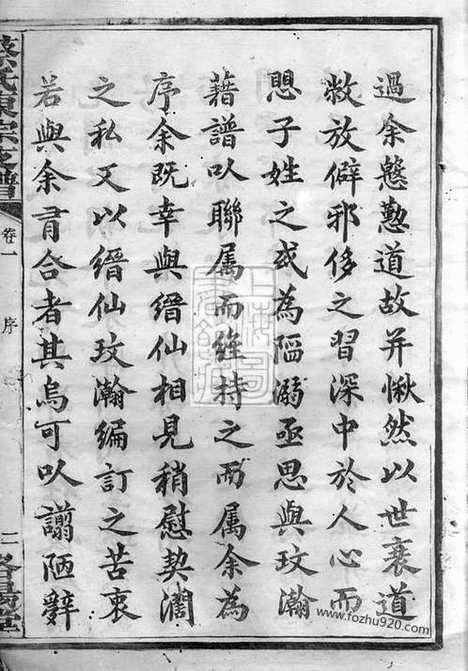 過余慇懃道故并愀然以世衰道
敝放僻邪侈之習深中於人心而
愳子姓之或為陷溺亟思與玟瀚
藉譜以聯属而維持之而属余為
序余既幸與縉仙相見稍慰契濶
之私又以縉仙玟瀚編訂之苦衷
若與余肙合者其烏可以譾陋辭
蔡氏東宗支譜
卷一
序
二
www.fozhu920.com